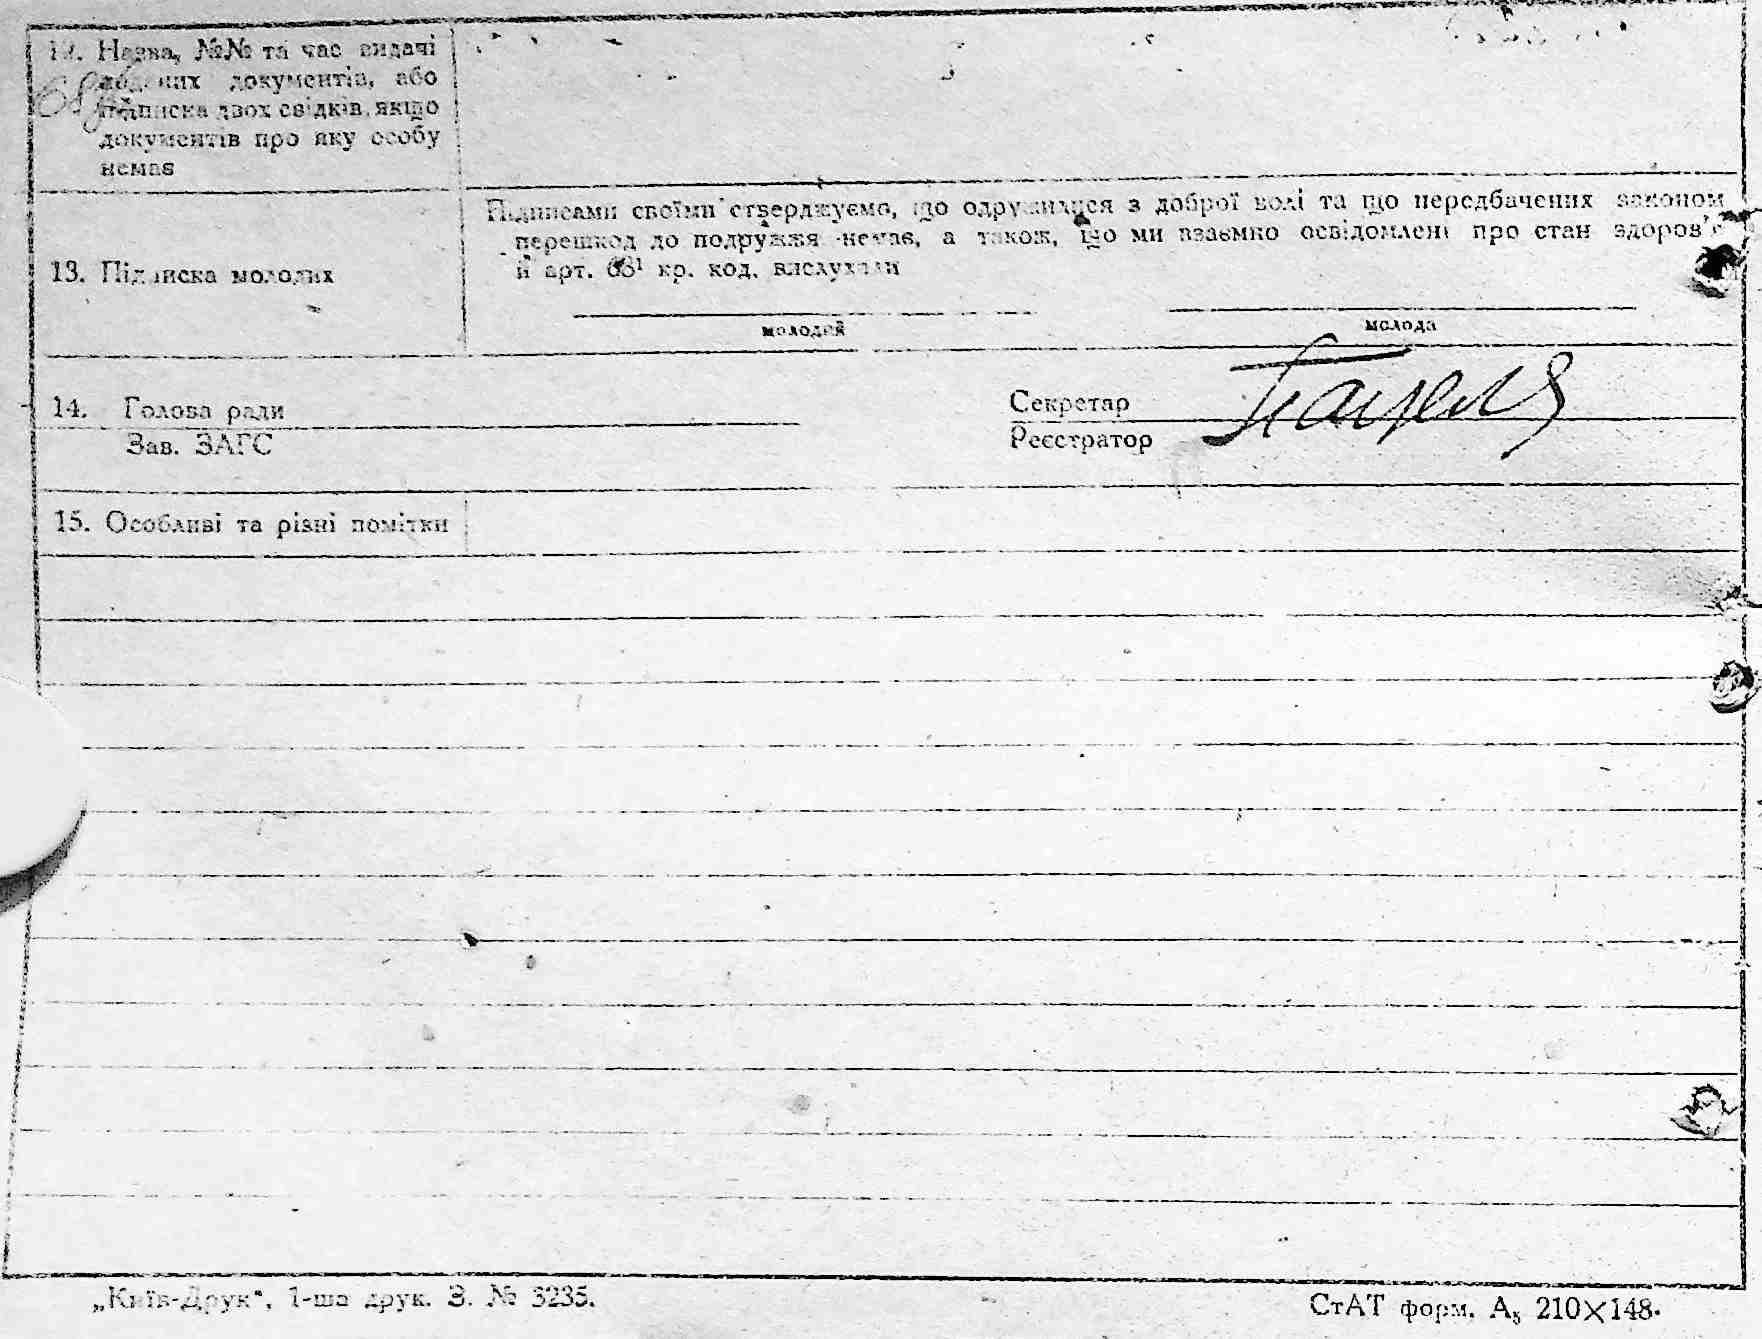 12. Назва, №№ та час видачі
поданих документів, або
підписка двох свідків, якщо
документів про яку особу
немає
13. Підписка молодих
Підписами своїми стверджуємо, що одружилися з доброї волі та що передбачених законом
перешкод до подружжя немає, а також, що ми взаємно освідомлені про стан здоров'я
й арт. 68¹ кр. код. вислухали
молодий молода
14. Голова ради Секретар
Зав. ЗАГС Реєстратор
15. Особливі та різні помітки
„Київ-Друк“, 1-ша друк. З. № 3235. СтАТ форм. А₅ 210×148.